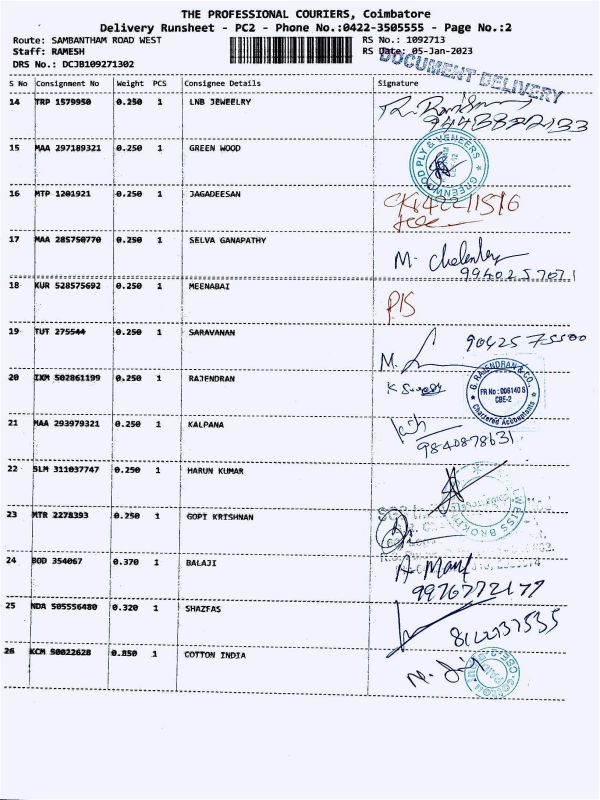 THE PROFESSIONAL COURIERS, Coimbatore
Delivery Runsheet - PC2 - Phone No.:0422-3505555 - Page No.:2
Route: SAMBANTHAM ROAD WEST RS No.: 1092713
Staff: RAMESH RS Date: 05-Jan-2023
DRS No.: DCJB109271302
DOCUMENT DELIVERY
S No Consignment No Weight PCS Consignee Details Signature
14 TRP 1579950 0.250 1 LNB JEWEELRY
15 MAA 297189321 0.250 1 GREEN WOOD
GREENWOOD PLY & VENEERS
16 MTP 1201921 0.250 1 JAGADEESAN
17 MAA 285750770 0.250 1 SELVA GANAPATHY
M.
18 KUR 528575692 0.250 1 MEENABAI
19 TUT 275544 0.250 1 SARAVANAN
M.
20 IXM 502861199 0.250 1 RAJENDRAN
G. RAJENDRAN & CO.
FR No : 006140 S
CBE-2
Chartered Accountants
21 MAA 293979321 0.250 1 KALPANA
9840878631
22 SLM 311037747 0.250 1 HARUN KUMAR
23 MTR 2278393 0.250 1 GOPI KRISHNAN
24 BOD 354067 0.370 1 BALAJI
9976772177
25 NDA 505556480 0.320 1 SHAZFAS
8122737535
26 KCM 50022628 0.850 1 COTTON INDIA